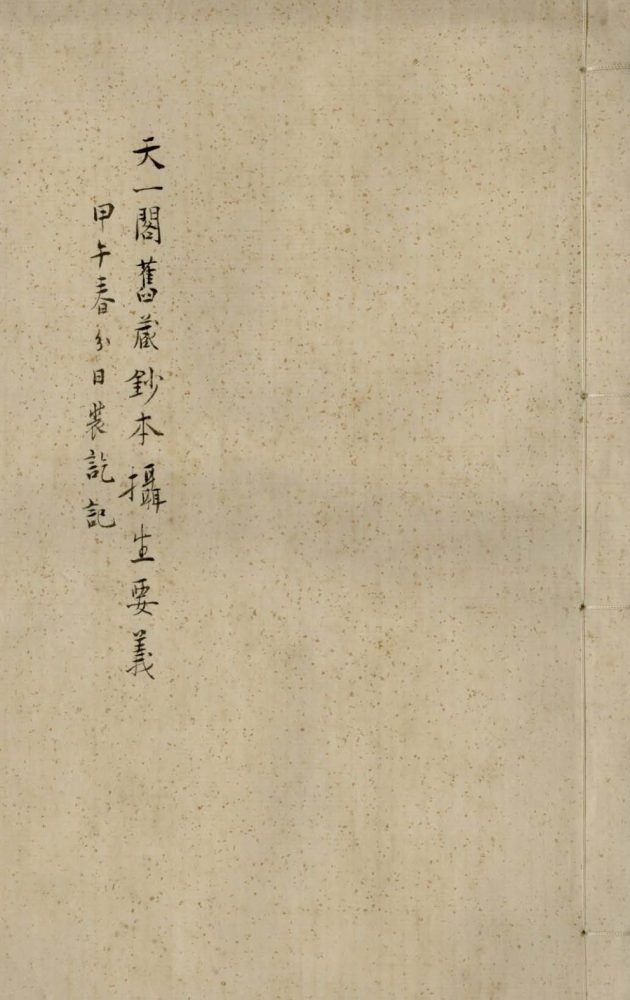 天一閣舊蔵鈔本攝生要義
甲午春分日裝訖記